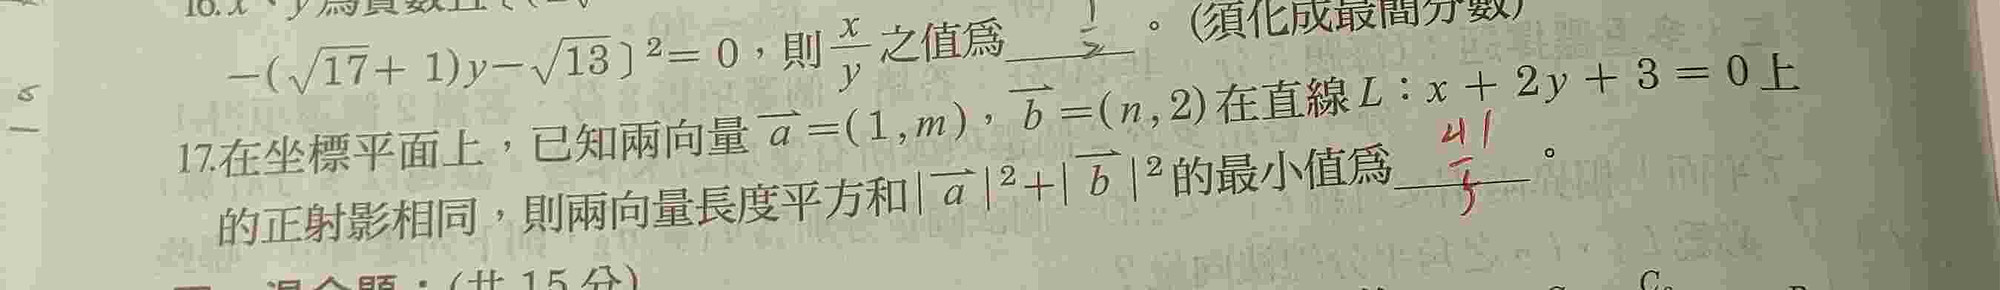 16. x、y 為實數且
−(√17+ 1)y−√13〕²= 0,則 x/y 之值為 1/2 。(須化成最簡分數)
17.在坐標平面上,已知兩向量 a⃗ =(1,m),b⃗ =(n,2)在直線L:x + 2y + 3 = 0上
的正射影相同,則兩向量長度平方和| a⃗ |²+| b⃗ |²的最小值為 41/5 。
混合題:(共 15 分)